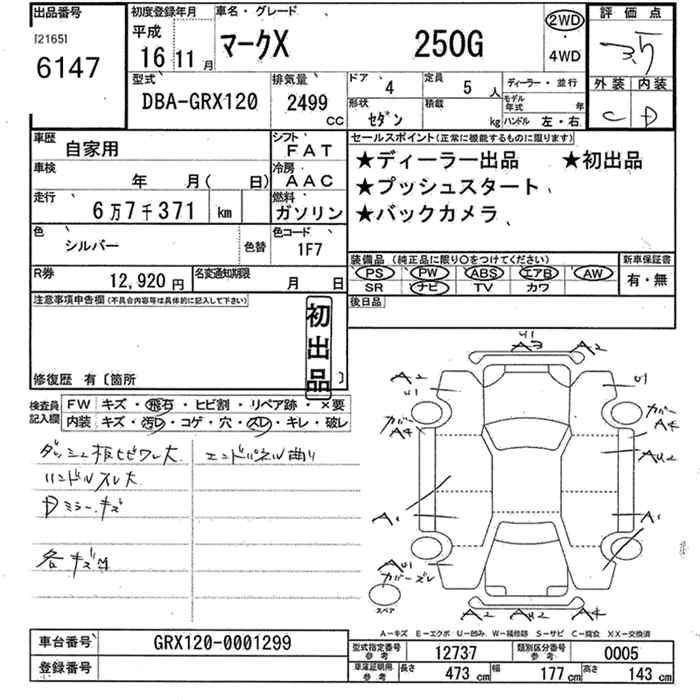 出品番号
[2165]
6147
初度登録年月
平成
16 11 月
車名・グレード
マークX 250G
2WD
・
4WD
評価点
3.5
外装 内装
C D
型式
DBA-GRX120
排気量
2499 CC
ドア 4
定員 5 人
ディーラー・並行
形状 セダン
積載 kg
モデル年式 年
ハンドル 左・右
車歴 自家用
シフト FAT
車検 年 月( 日)
冷房 AAC
走行 6万7千371 km
燃料 ガソリン
色 シルバー
色替
色コード 1F7
R券 12,920 円
名変通知期限 月 日
セールスポイント(正常に機能するものに限ります)
★ディーラー出品 ★初出品
★プッシュスタート
★バックカメラ
装備品 (純正品に限り○をつけてください)
PS PW ABS エアB AW
SR ナビ TV カワ
新車保証書
有・無
後日品
注意事項申告欄(不具合内容等は具体的に記入して下さい)
初出品
修復歴 有〔箇所 〕
検査員記入欄
FW キズ・飛石・ヒビ割・リペア跡・×要
内装 キズ・汚レ・コゲ・穴・スレ・キレ・破レ
ダッシュ板ヒビワレ大 エンドパネル曲り
ハンドルスレ大
Dミラーキズ
各キズ凹
U1
A3 A2
A2
U1 U1
カバー
A4
カバー
A4
AU2
A1 A1
AU1
カバーズレ
スペア
A2 AU2 A4
A-キズ E-エクボ U-凹み W-補修跡 S-サビ C-腐食 XX-交換済
車台番号 GRX120-0001299
登録番号
型式指定番号 参考 12737
類別区分番号 参考 0005
車庫証明用 参考 長さ 473 cm 幅 177 cm 高さ 143 cm